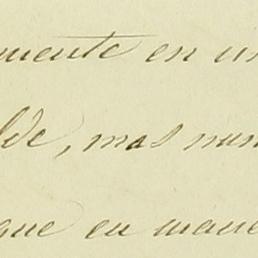 mente en un
lde, mas nun
que en mane